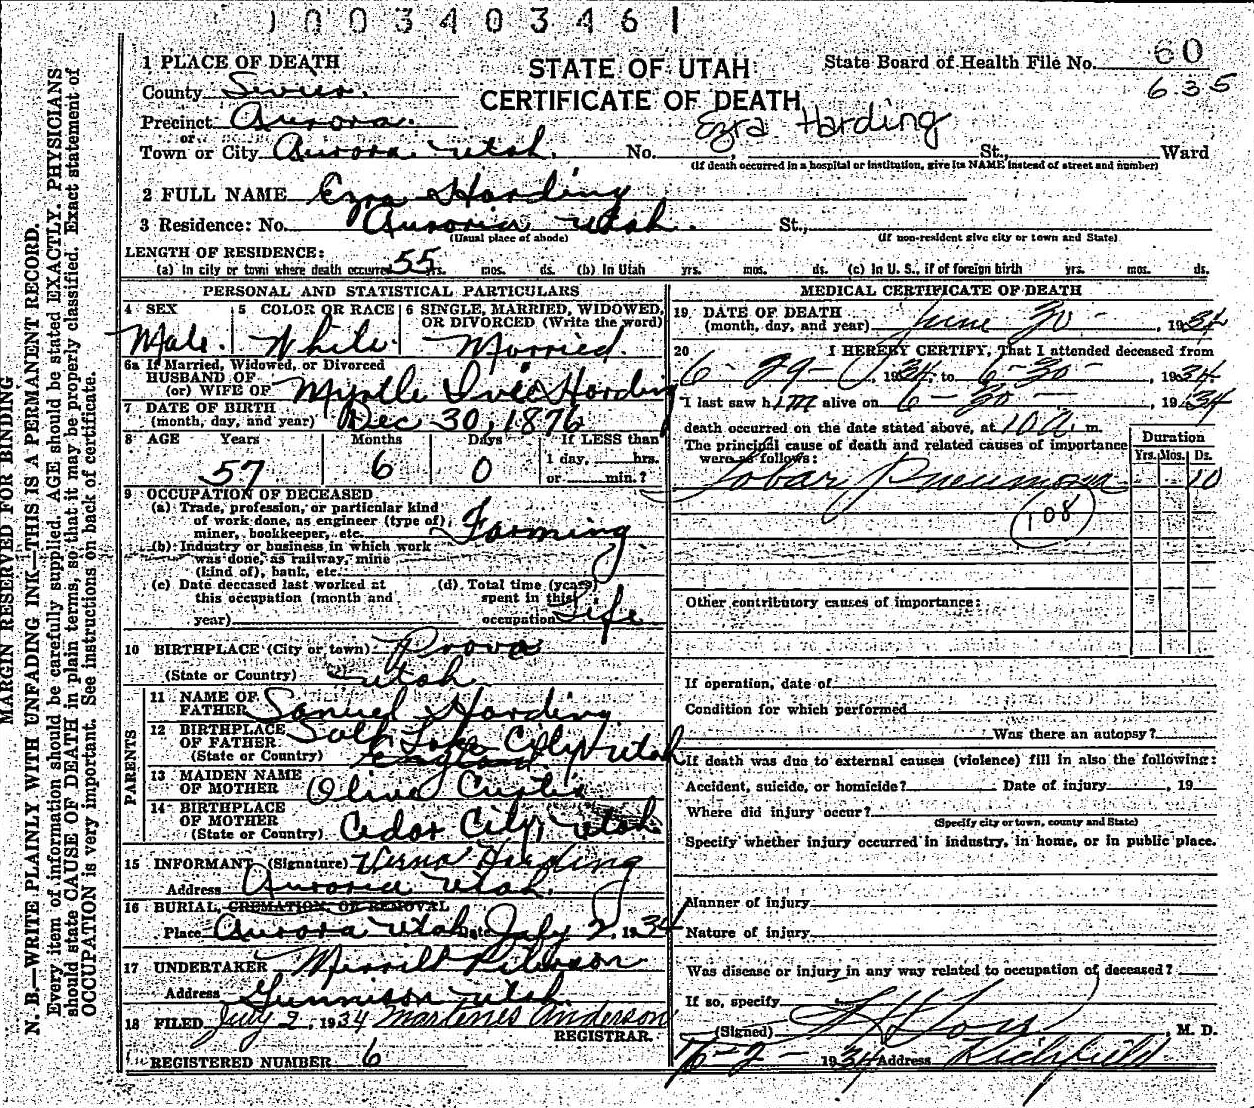 1003403461
1 PLACE OF DEATH
STATE OF UTAH
CERTIFICATE OF DEATH
State Board of Health File No. 60
635
County Sevier.
Precinct Aurora.
or
Town or City Aurora Utah. No. Ezra Harding St., Ward
(If death occurred in a hospital or institution, give its NAME instead of street and number)
2 FULL NAME Ezra Harding
3 Residence: No. Aurora Utah. St.,
(Usual place of abode) (If non-resident give city or town and State)
LENGTH OF RESIDENCE:
(a) In city or town where death occurred 55 yrs. mos. ds. (b) In Utah yrs. mos. ds. (c) In U. S., if of foreign birth yrs. mos. ds.
PERSONAL AND STATISTICAL PARTICULARS
4 SEX
Male.
5 COLOR OR RACE
White.
6 SINGLE, MARRIED, WIDOWED,
OR DIVORCED (Write the word)
Married.
6a If Married, Widowed, or Divorced
HUSBAND OF
(or) WIFE OF Myrtle Ivie Harding
7 DATE OF BIRTH
(month, day, and year) Dec 30, 1876
8 AGE Years Months Days If LESS than
57 6 0 1 day, hrs.
or min.?
9 OCCUPATION OF DECEASED
(a) Trade, profession, or particular kind
of work done, as engineer (type of),
miner, bookkeeper, etc. Farming
(b) Industry or business in which work
was done, as railway, mine
(kind of), bank, etc.
(c) Date deceased last worked at
this occupation (month and
year)
(d) Total time (years)
spent in this
occupation Life
10 BIRTHPLACE (City or town) Provo
(State or Country) Utah
PARENTS
11 NAME OF
FATHER Samuel Harding.
12 BIRTHPLACE
OF FATHER Salt Lake City Utah
(State or Country) England
13 MAIDEN NAME
OF MOTHER Olive Curtis
14 BIRTHPLACE
OF MOTHER
(State or Country) Cedar City, Utah
15 INFORMANT (Signature) Verna Harding
Address Aurora Utah.
16 BURIAL, CREMATION, OR REMOVAL
Place Aurora Utah Date July 2, 1934
17 UNDERTAKER Merrill
Address Gunnison Utah.
18 FILED July 2, 1934 Martenes Anderson
REGISTRAR.
REGISTERED NUMBER 6
MEDICAL CERTIFICATE OF DEATH
19 DATE OF DEATH
(month, day, and year) June 30 - , 1934
20 I HEREBY CERTIFY, That I attended deceased from
6-29- , 1934, to 6-30- , 1934.
I last saw him alive on 6-30- , 1934
death occurred on the date stated above, at 10 a. m.
The principal cause of death and related causes of importance
were as follows:
Duration
Yrs. Mos. Ds.
Lobar Pneumonia 10
108
Other contributory causes of importance:
If operation, date of
Condition for which performed
Was there an autopsy?
If death was due to external causes (violence) fill in also the following:
Accident, suicide, or homicide? Date of injury , 19
Where did injury occur?
(Specify city or town, county and State)
Specify whether injury occurred in industry, in home, or in public place.
Manner of injury
Nature of injury
Was disease or injury in any way related to occupation of deceased?
If so, specify
(Signed) , M. D.
7-2- 1934 Address Richfield
MARGIN RESERVED FOR BINDING
N. B.—WRITE PLAINLY WITH UNFADING INK—THIS IS A PERMANENT RECORD.
Every item of information should be carefully supplied. AGE should be stated EXACTLY. PHYSICIANS
should state CAUSE OF DEATH in plain terms, so that it may be properly classified. Exact statement of
OCCUPATION is very important. See instructions on back of certificate.